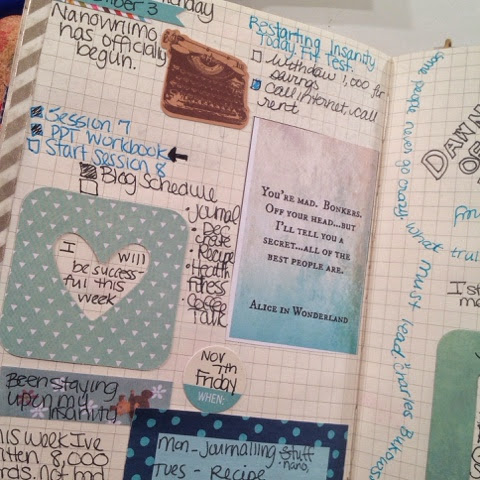 mber 3
Nanowrimo
has officially
begun.
Restarting Insanity
Today. Fit Test.
Withdaw 1,000 for
savings
Call internet, call
rent
Session 7
PPT Workbook
Start Session 8
Blog Schedule
• Journal
• Dec
create
• Recipe
• Health
fitness
• Coffee
Talk
I will
be success-
full this
week
You're mad. Bonkers.
Off your head...but
I'll tell you a
secret...all of the
best people are.
Alice in Wonderland
Nov
7th
Friday
WHEN:
Been staying
upon my
insanity.
his week I've
itten 8,000
rds. not bad
Mon - Journalling stuff
nano,
Tues - Recipe
Some people never go crazy, what
must lead" Charles Bukows
DAWN
OF
trul
I st
me